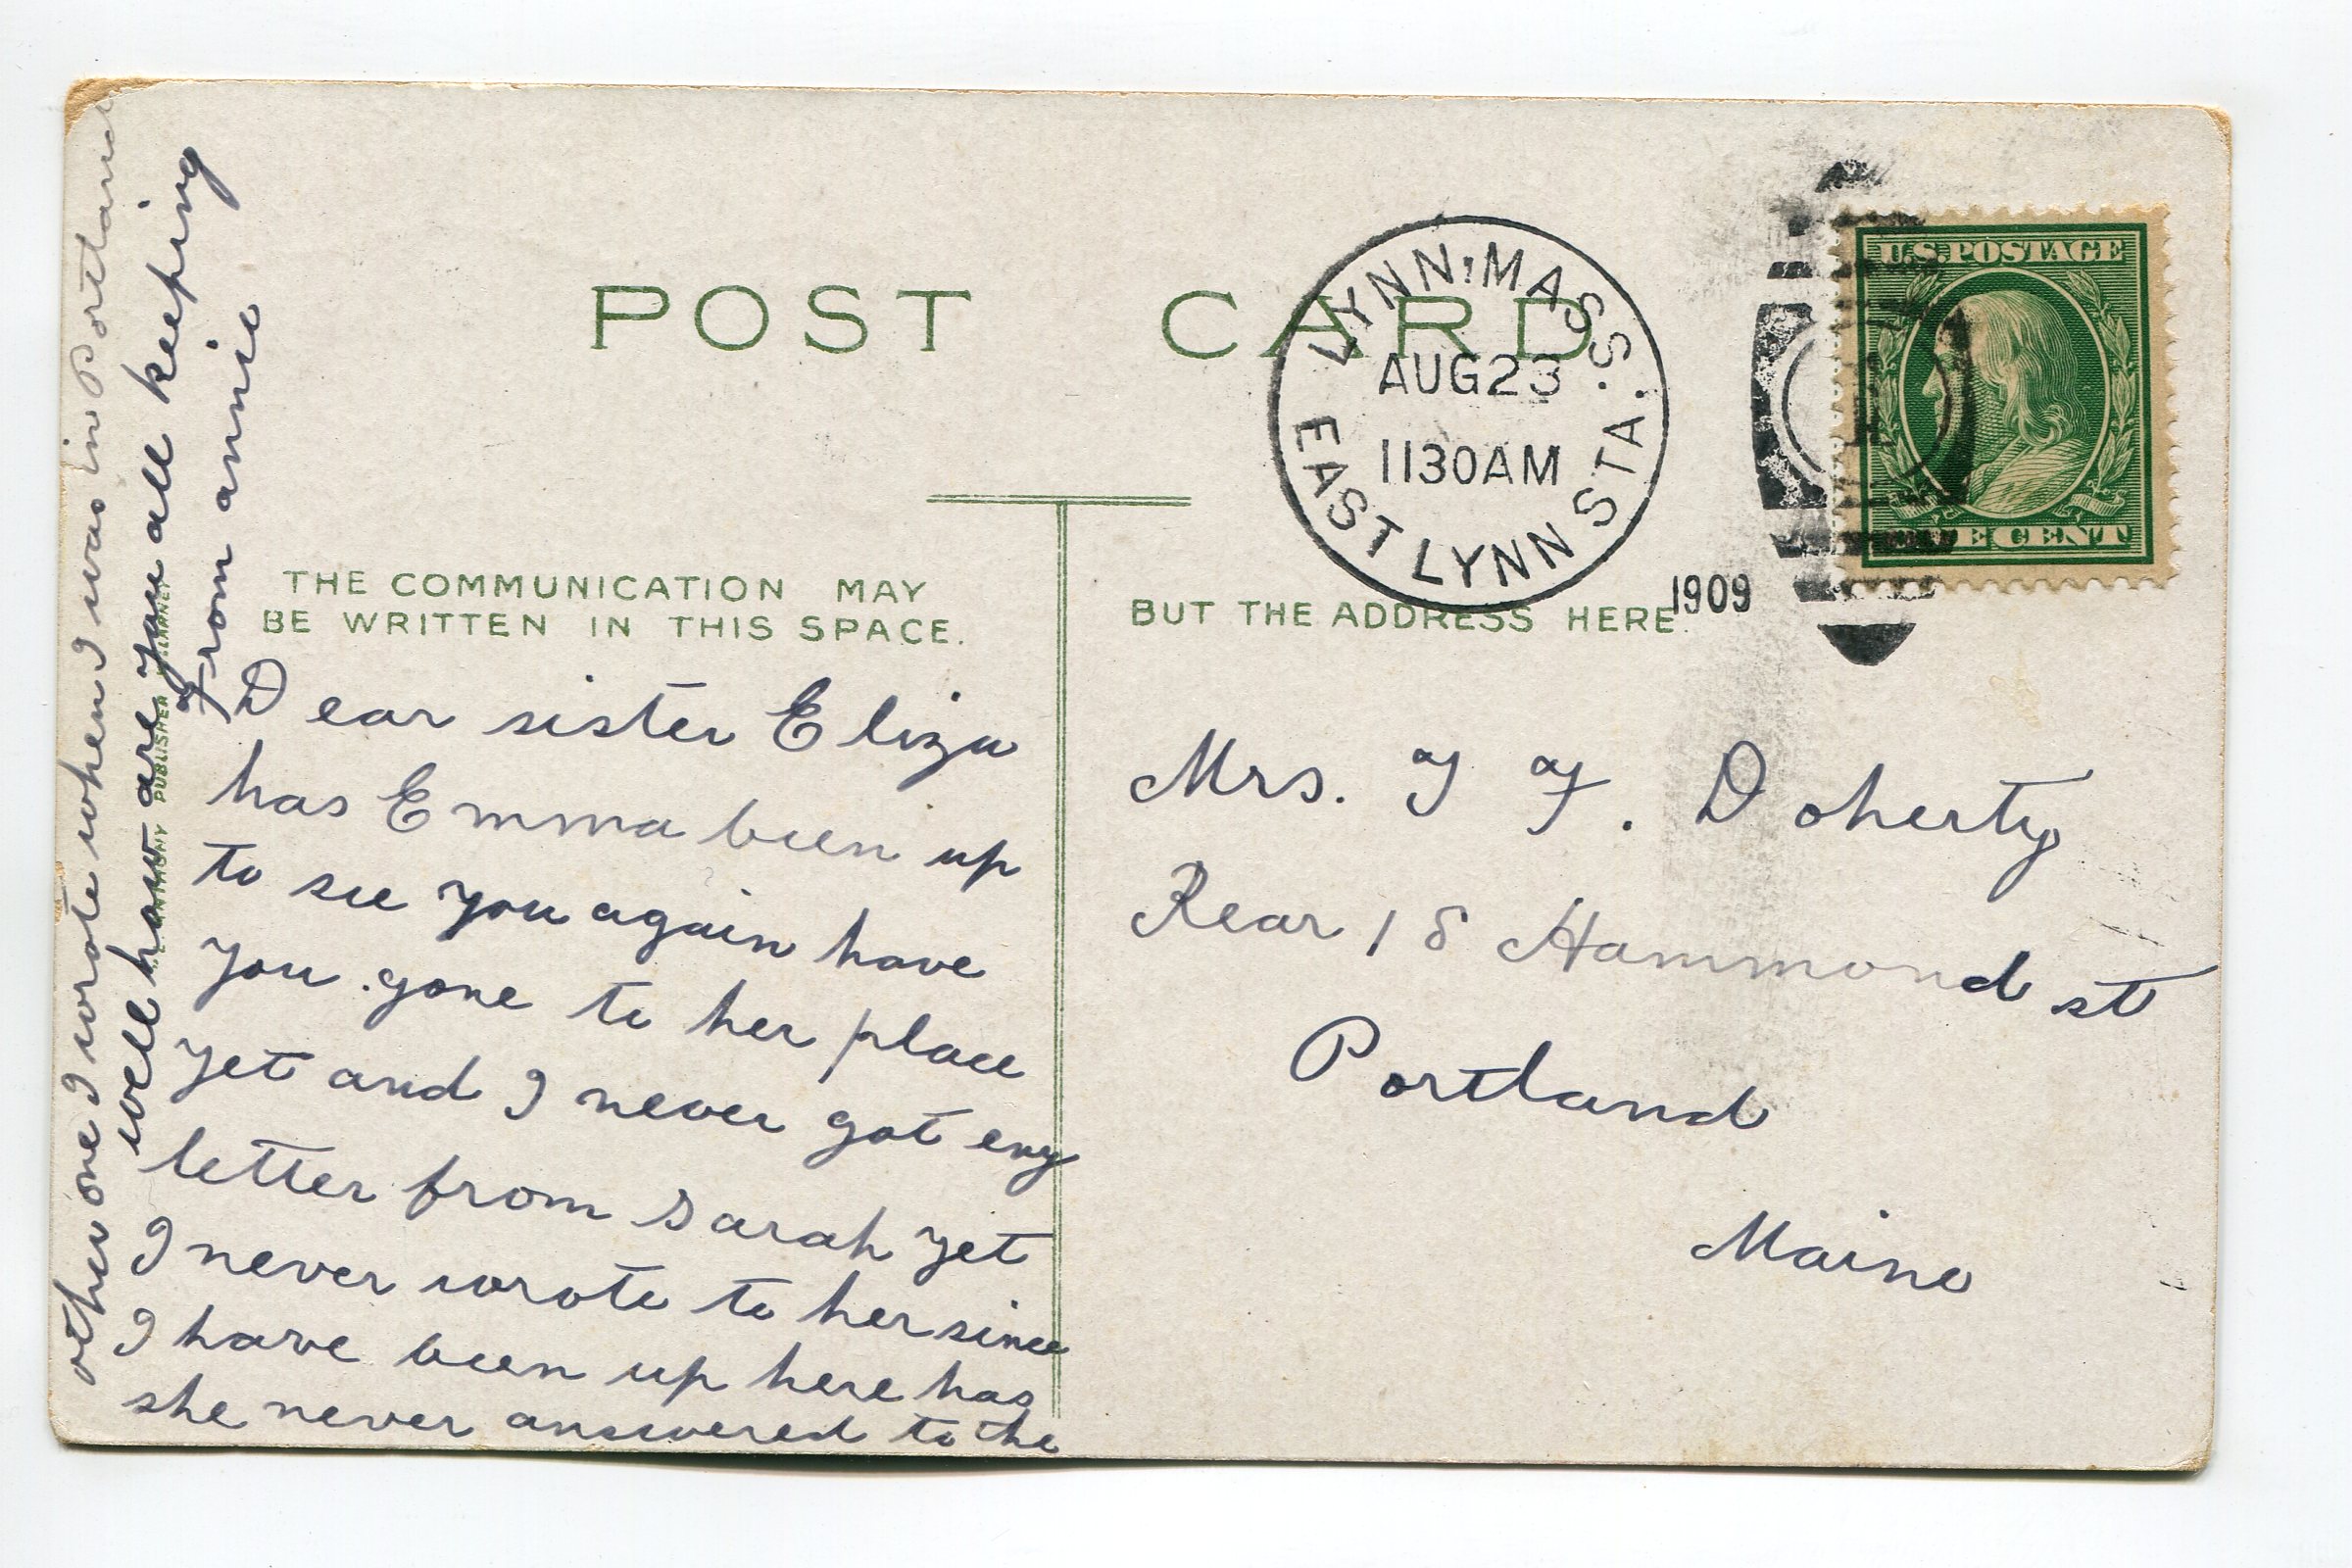 POST CARD
LYNN, MASS.
AUG 23
1130AM
EAST LYNN STA.
1909
U.S. POSTAGE
ONE CENT
THE COMMUNICATION MAY
BE WRITTEN IN THIS SPACE.
BUT THE ADDRESS HERE.
Dear sister Eliza
has Emma been up
to see you again have
you gone to her place
yet and I never got eny
letter from Sarah yet
I never wrote to her since
I have been up here has
she never answered to the
other one I wrote when I was in Portland
well how are you all keeping
From annie
PUBLISHER
Mrs. J F. Doherty
Rear 18 Hammond st
Portland
Maine